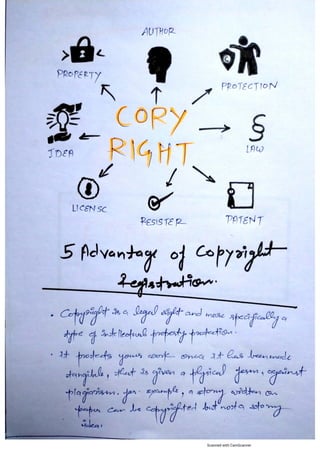 AUTHOR
PROPERTY
PROTECTION
CORY
RIGHT
IDEA
LAW
LICENSC
RESISTER
PATENT
5 Advantage of Copyright
Registration.
• Copyright is a legal right and more specifically a
type of intellectual property protection.
• It protects your work once it has been made
tangible, that is given a physical form, against
plagiarism. for example, a story written on
paper can be copyrighted but not a story
idea.
Scanned with CamScanner